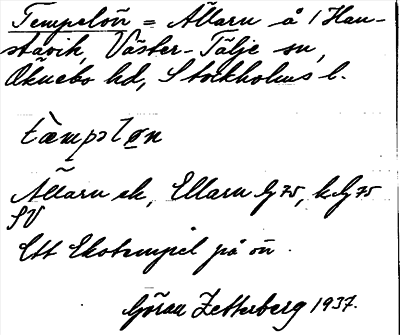 Tempelön = Ällarn å / Han-
stavik, Väster-Tälje sn,
Öknebo hd, Stockholms l.
tæmpəløn
Ällarn ek, Ellarn Gj75, k Gj75
SV
Ett Ekotempel på ön.
Göran Zetterberg 1937.